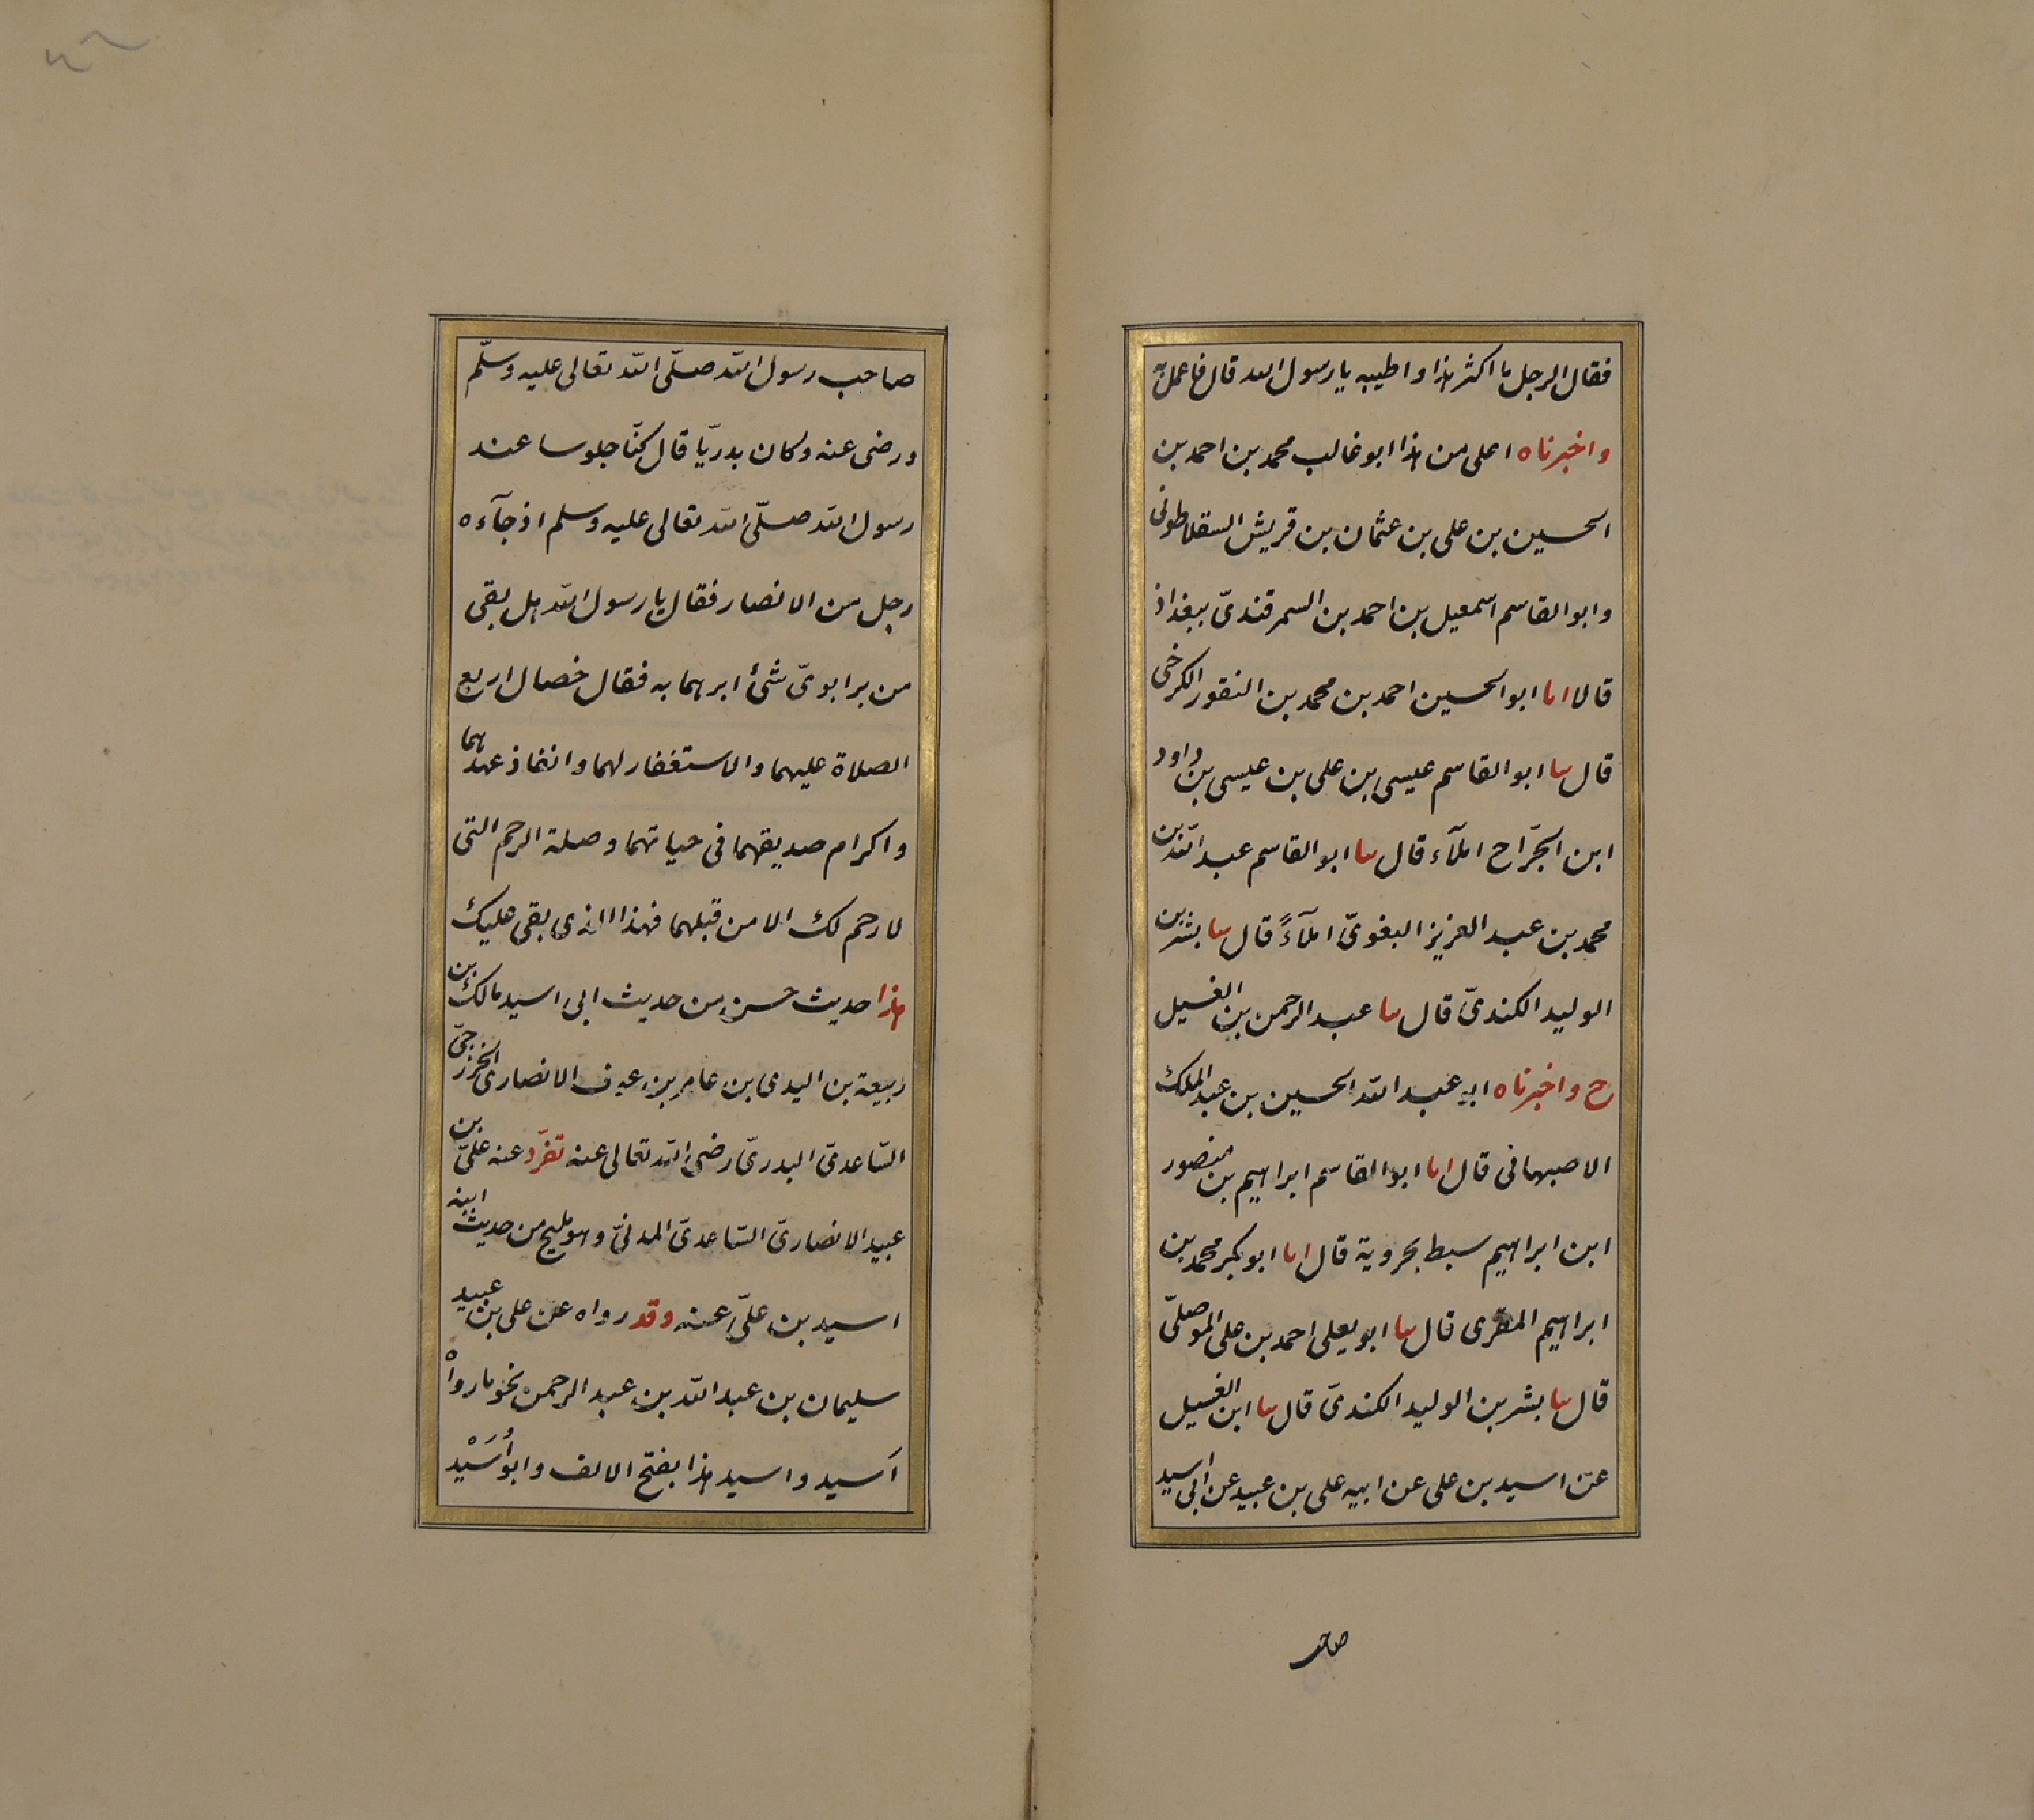 فقال الرجل ما اكثر هذا واطيبه يا رسول الله قال فاعمل به
واخبرناه اعلى من هذا ابو غالب محمد بن احمد بن
الحسين بن على بن عثمان بن قريش السقلاطونى
وابو القاسم اسمعيل بن احمد بن السمرقندىّ ببغداذ
قالا انا ابو الحسين احمد بن محمد بن النقور الكرخى
قال ثنا ابو القاسم عيسى بن على بن عيسى بن داود
ابن الجرّاح املآء قال ثنا ابو القاسم عبد الله بن
محمد بن عبد العزيز البغوىّ املآءً قال ثنا بشر بن
الوليد الكندىّ قال ثنا عبد الرحمن بن الغسيل
ح واخبرناه ابو عبد الله الحسين بن عبد الملك
الاصبهانى قال انا ابو القاسم ابراهيم بن منصور
ابن ابراهيم سبط بحروية قال انا ابو بكر محمد بن
ابراهيم المقرى قال ثنا ابو يعلى احمد بن على الموصلىّ
قال ثنا بشر بن الوليد الكندىّ قال ثنا ابن الغسيل
عن اسيد بن على عن ابيه على بن عبيد عن ابى اسيد
صاحب
صاحب رسول الله صلّى الله تعالى عليه وسلّم
ورضى عنه وكان بدريّا قال كنّا جلوسا عند
رسول الله صلّى الله تعالى عليه وسلم اذ جآءه
رجل من الانصار فقال يا رسول الله هل بقى
من بر ابوىّ شئ ابرهما به فقال خصال اربع
الصلاة عليهما والاستغفار لهما وانفاذ عهدهما
واكرام صديقهما فى حياتهما وصلة الرحم التى
لا رحم لك الا من قبلهما فهذا الذى بقى عليك
هذا حديث حسن من حديث ابى اسيد مالك بن
ربيعة بن اليدى بن عامر بن عوف الانصارى الخزرجىّ
السّاعدىّ البدرىّ رضى الله تعالى عنه تفرّد عنه علىّ بن
عبيد الانصارىّ السّاعدىّ المدنىّ وهو مليح من حديث ابنه
اسيد بن علىّ عنه وقد رواه عن على بن عبيد
سليمان بن عبد الله بن عبد الرحمن نحو ما رواه
اَسيد واسيد هذا بفتح الالف وابو اُسَيْد